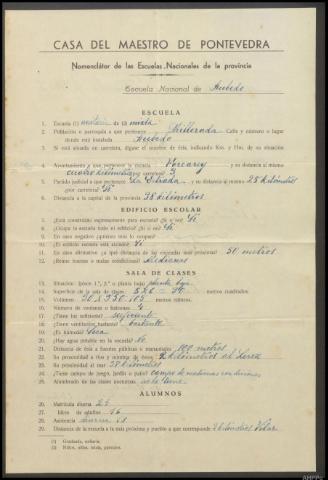 CASA DEL MAESTRO DE PONTEVEDRA
Nomenclátor de las Escuelas Nacionales de la provincia
Escuela Nacional de Acibedo
ESCUELA
1. Escuela (1) unitaria de (2) mixta
2. Población o parroquia a que pertenece Millerada Calle y número o lugar
donde está instalada Acibedo
3. Si está situada en carretera, dígase el nombre de ésta, indicando Km. y Hm. de su situación
4. Ayuntamiento a que pertenece la escuela Forcarey y su distancia al mismo
cuatro kilómetros (por carretera)
5. Partido judicial a que pertenece La Estrada y su distancia al mismo 25 kilómetros
(por carretera) Si
6. Distancia a la capital de la provincia 38 kilómetros
EDIFICIO ESCOLAR
7. ¿Está construído expresamente para escuela? (Si o no) Si
8. ¿Ocupa la escuela todo el edificio? (Si o no) Si
9. En caso negativo ¿quiénes más lo ocupan?
10. ¿El edificio escuela está aislado? Si
11. En caso afirmativo ¿a qué distancia del edificio más próximo? 50 metros
12. ¿Reúne buenas o malas condiciones? Medianas
SALA DE CLASES
13. Situación: (piso 1.º, 2.º o planta baja) planta baja
14. Superficie de la sala de clases 5 X 6 = 30 metros cuadrados.
15. Volúmen: 30 X 3'50 = 105 metros cúbicos.
16. Número de ventanas o balcones 4
17. ¿Tiene luz suficiente? suficiente
18. ¿Tiene ventilación bastante? bastante
19. ¿Es húmeda? Seca
20. ¿Hay agua potable en la escuela? No
21. Distancia de ésta a fuentes públicas o manantiales 100 metros
22. Su proximidad a ríos y nombre de éstos 2 kilómetros el Lerez
23. Su proximidad al mar 38 kilómetros
24. ¿Tiene campo de juego, jardín o patio? campo de medianas condiciones
25. Alumbrado de las clases nocturnas no lo tiene
ALUMNOS
26. Matrícula diurna 25
27. Idem de adultos 16
28. Asistencia diurna 18
29. Distancia de la escuela a la más próxima y pueblo a que corresponde 2 kilómetros Vilar
(1) Graduada, unitaria.
(2) Niños, niñas, mixta, párvulos.
AHPPo